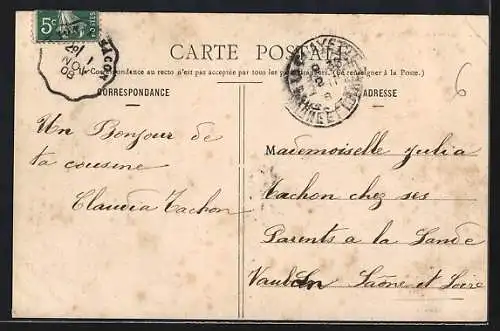 5c
CARTE POSTALE
La Correspondance au recto n'est pas acceptée par tous les pays étrangers. (Se renseigner à la Poste.)
CORRESPONDANCE
ADRESSE
6
Un Bonjour de
ta cousine
Claudia Tachon
Mademoiselle Julia
Tachon chez ses
Parents a la Lande
Saône et Loire